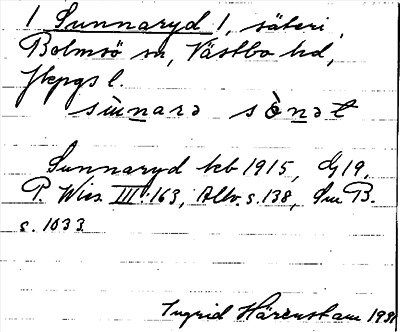 1 Sunnaryd 1, säteri,
Bolmsö sn, Västbo hd,
Jkpgs l.
sùnarə sònət
Sunnaryd kb 1915, G19,
P. Wies. III:163, Allv. s. 138, Sm B.
s. 1033
Ingrid Härenstam 1931